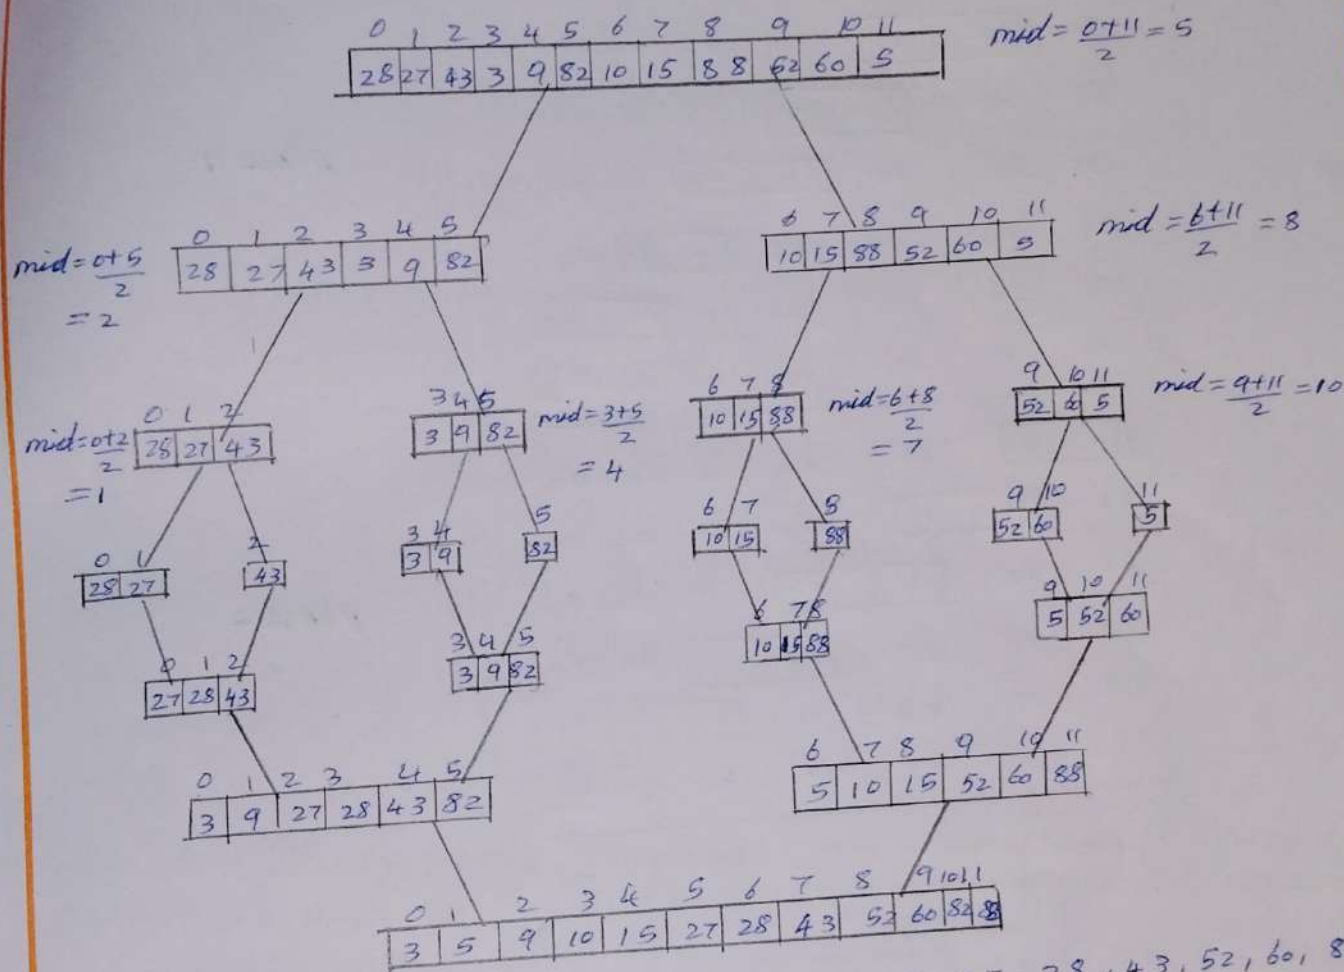 0 1 2 3 4 5 6 7 8 9 10 11
28 27 43 3 9 82 10 15 88 52 60 5
mid = 0+11/2 = 5
0 1 2 3 4 5
28 27 43 3 9 82
mid = 0+5/2
= 2
6 7 8 9 10 11
10 15 88 52 60 5
mid = 6+11/2 = 8
0 1 2
28 27 43
mid = 0+2/2
= 1
3 4 5
3 9 82
mid = 3+5/2
= 4
6 7 8
10 15 88
mid = 6+8/2
= 7
9 10 11
52 60 5
mid = 9+11/2 = 10
0 1
28 27
2
43
3 4
3 9
5
82
6 7
10 15
8
88
9 10
52 60
11
5
0 1 2
27 28 43
3 4 5
3 9 82
6 7 8
10 15 88
9 10 11
5 52 60
0 1 2 3 4 5
3 9 27 28 43 82
6 7 8 9 10 11
5 10 15 52 60 88
0 1 2 3 4 5 6 7 8 9 10 11
3 5 9 10 15 27 28 43 52 60 82 88
28, 43, 52, 60, 8